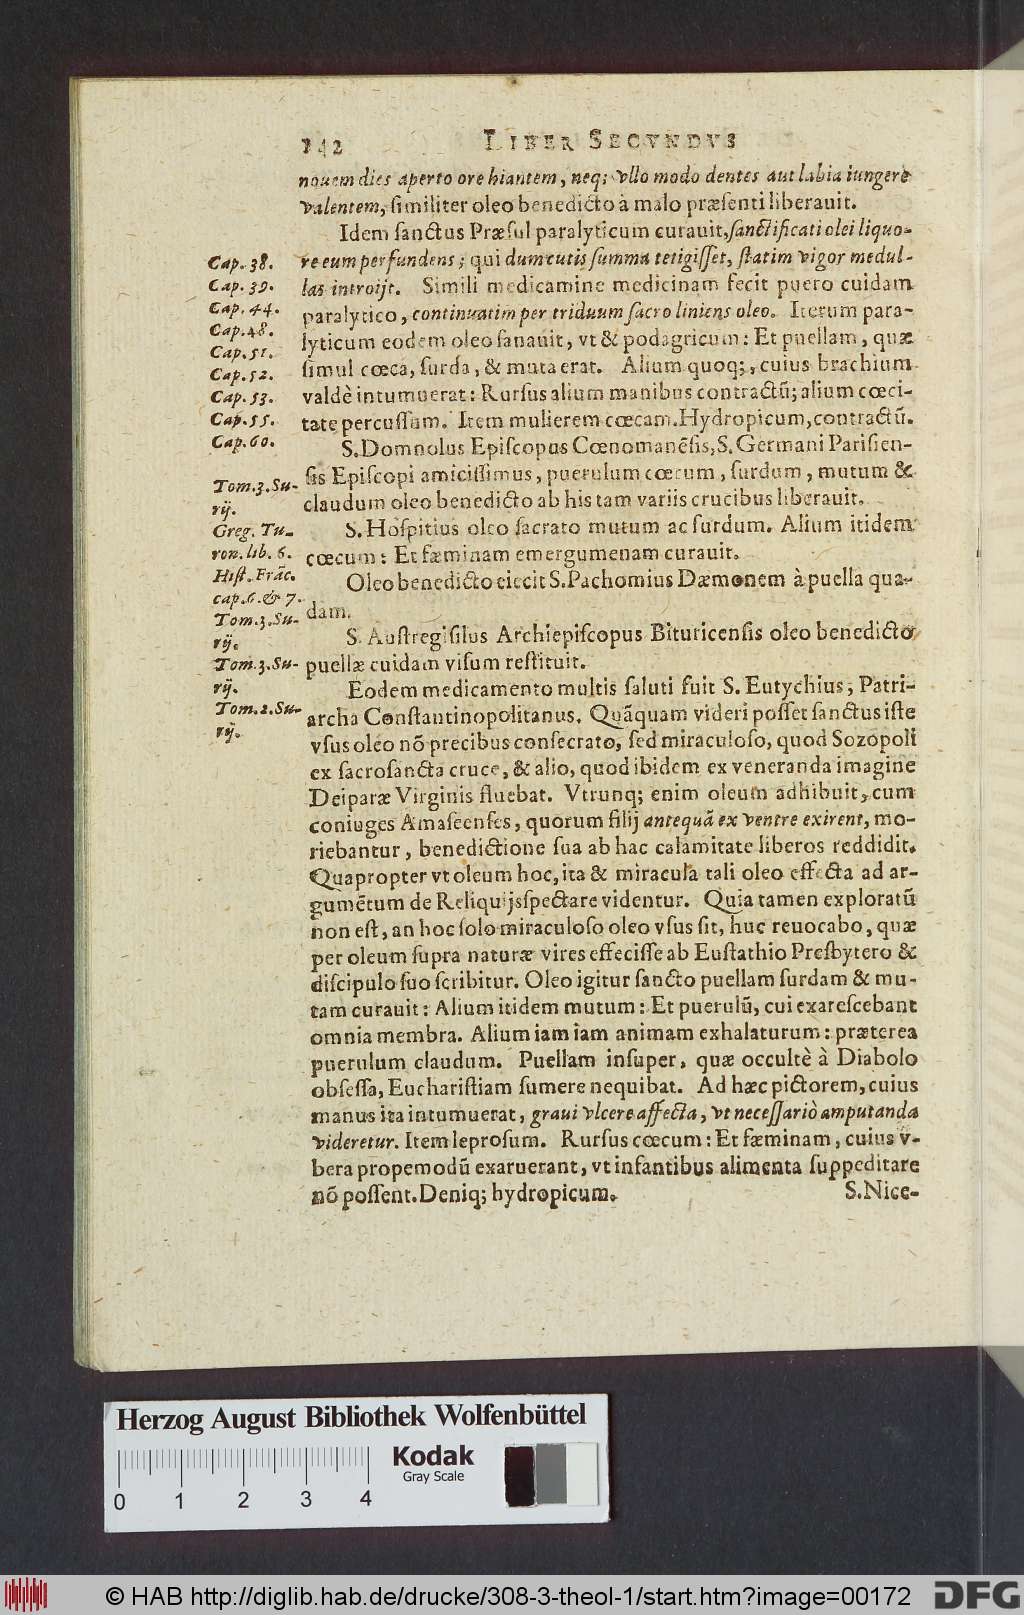 142 LIBER SECVNDVS
nouem dies aperto ore hiantem, neq; vllo modo dentes aut labia iungere
valentem, ſimiliter oleo benedicto à malo præſenti liberauit.
Idem ſanctus Præſul paralyticum curauit, ſanctificati olei liquo-
re eum perfundens; qui dum cutis ſumma tetigiſſet, ſtatim vigor medul-
las introijt. Simili medicamine medicinam fecit puero cuidam
paralytico, continuatim per triduum ſacro liniens oleo. Iterum para-
lyticum eodem oleo ſanauit, vt & podagricum: Et puellam, quæ
ſimul cœca, ſurda, & muta erat. Alium quoq;, cuius brachium
valdè intumuerat: Rurſus alium manibus contractũ; alium cœci-
tate percuſſum. Item mulierem cœcam. Hydropicum, contractũ.
S. Domnolus Epiſcopus Cœnomanẽſis, S. Germani Pariſien-
ſis Epiſcopi amiciſſimus, puerulum cœcum, ſurdum, mutum &
claudum oleo benedicto ab his tam variis crucibus liberauit.
S. Hoſpitius oleo ſacrato mutum ac ſurdum. Alium itidem
cœcum: Et fæminam emergumenam curauit.
Oleo benedicto eiecit S. Pachomius Dæmonem à puella qua-
dam.
S. Auſtregiſilus Archiepiſcopus Bituricenſis oleo benedicto
puellæ cuidam viſum reſtituit.
Eodem medicamento multis ſaluti fuit S. Eutychius, Patri-
archa Conſtantinopolitanus. Quãquam videri poſſet ſanctus iſte
vſus oleo nõ precibus conſecrato, ſed miraculoſo, quod Sozopoli
ex ſacroſancta cruce, & alio, quod ibidem ex veneranda imagine
Deiparæ Virginis fluebat. Vtrunq; enim oleum adhibuit, cum
coniuges Amaſeenſes, quorum filij antequã ex ventre exirent, mo-
riebantur, benedictione ſua ab hac calamitate liberos reddidit.
Quapropter vt oleum hoc, ita & miracula tali oleo effecta ad ar-
gumẽtum de Reliquijs ſpectare videntur. Quia tamen exploratũ
non eſt, an hoc ſolo miraculoſo oleo vſus ſit, huc reuocabo, quæ
per oleum ſupra naturæ vires effeciſſe ab Euſtathio Presbytero &
diſcipulo ſuo ſcribitur. Oleo igitur ſancto puellam ſurdam & mu-
tam curauit: Alium itidem mutum: Et puerulũ, cui exareſcebant
omnia membra. Alium iam iam animam exhalaturum: præterea
puerulum claudum. Puellam inſuper, quæ occultè à Diabolo
obſeſſa, Euchariſtiam ſumere nequibat. Ad hæc pictorem, cuius
manus ita intumuerat, graui vlcere affecta, vt neceſſariò amputanda
videretur. Item leproſum. Rurſus cœcum: Et fæminam, cuius v-
bera propemodũ exaruerant, vt infantibus alimenta ſuppeditare
nõ poſſent. Deniq; hydropicum. S. Nice-
Cap. 38.
Cap. 39.
Cap. 44.
Cap. 48.
Cap. 51.
Cap. 52.
Cap. 53.
Cap. 55.
Cap. 60.
Tom. 3. Su-
rij.
Greg. Tu-
ron. lib. 6.
Hiſt. Frãc.
cap. 6. & 7.
Tom. 3. Su-
rij.
Tom. 3. Su-
rij.
Tom. 2. Su-
rij.
Herzog August Bibliothek Wolfenbüttel
Kodak
Gray Scale
0 1 2 3 4
© HAB http://diglib.hab.de/drucke/308-3-theol-1/start.htm?image=00172
DFG